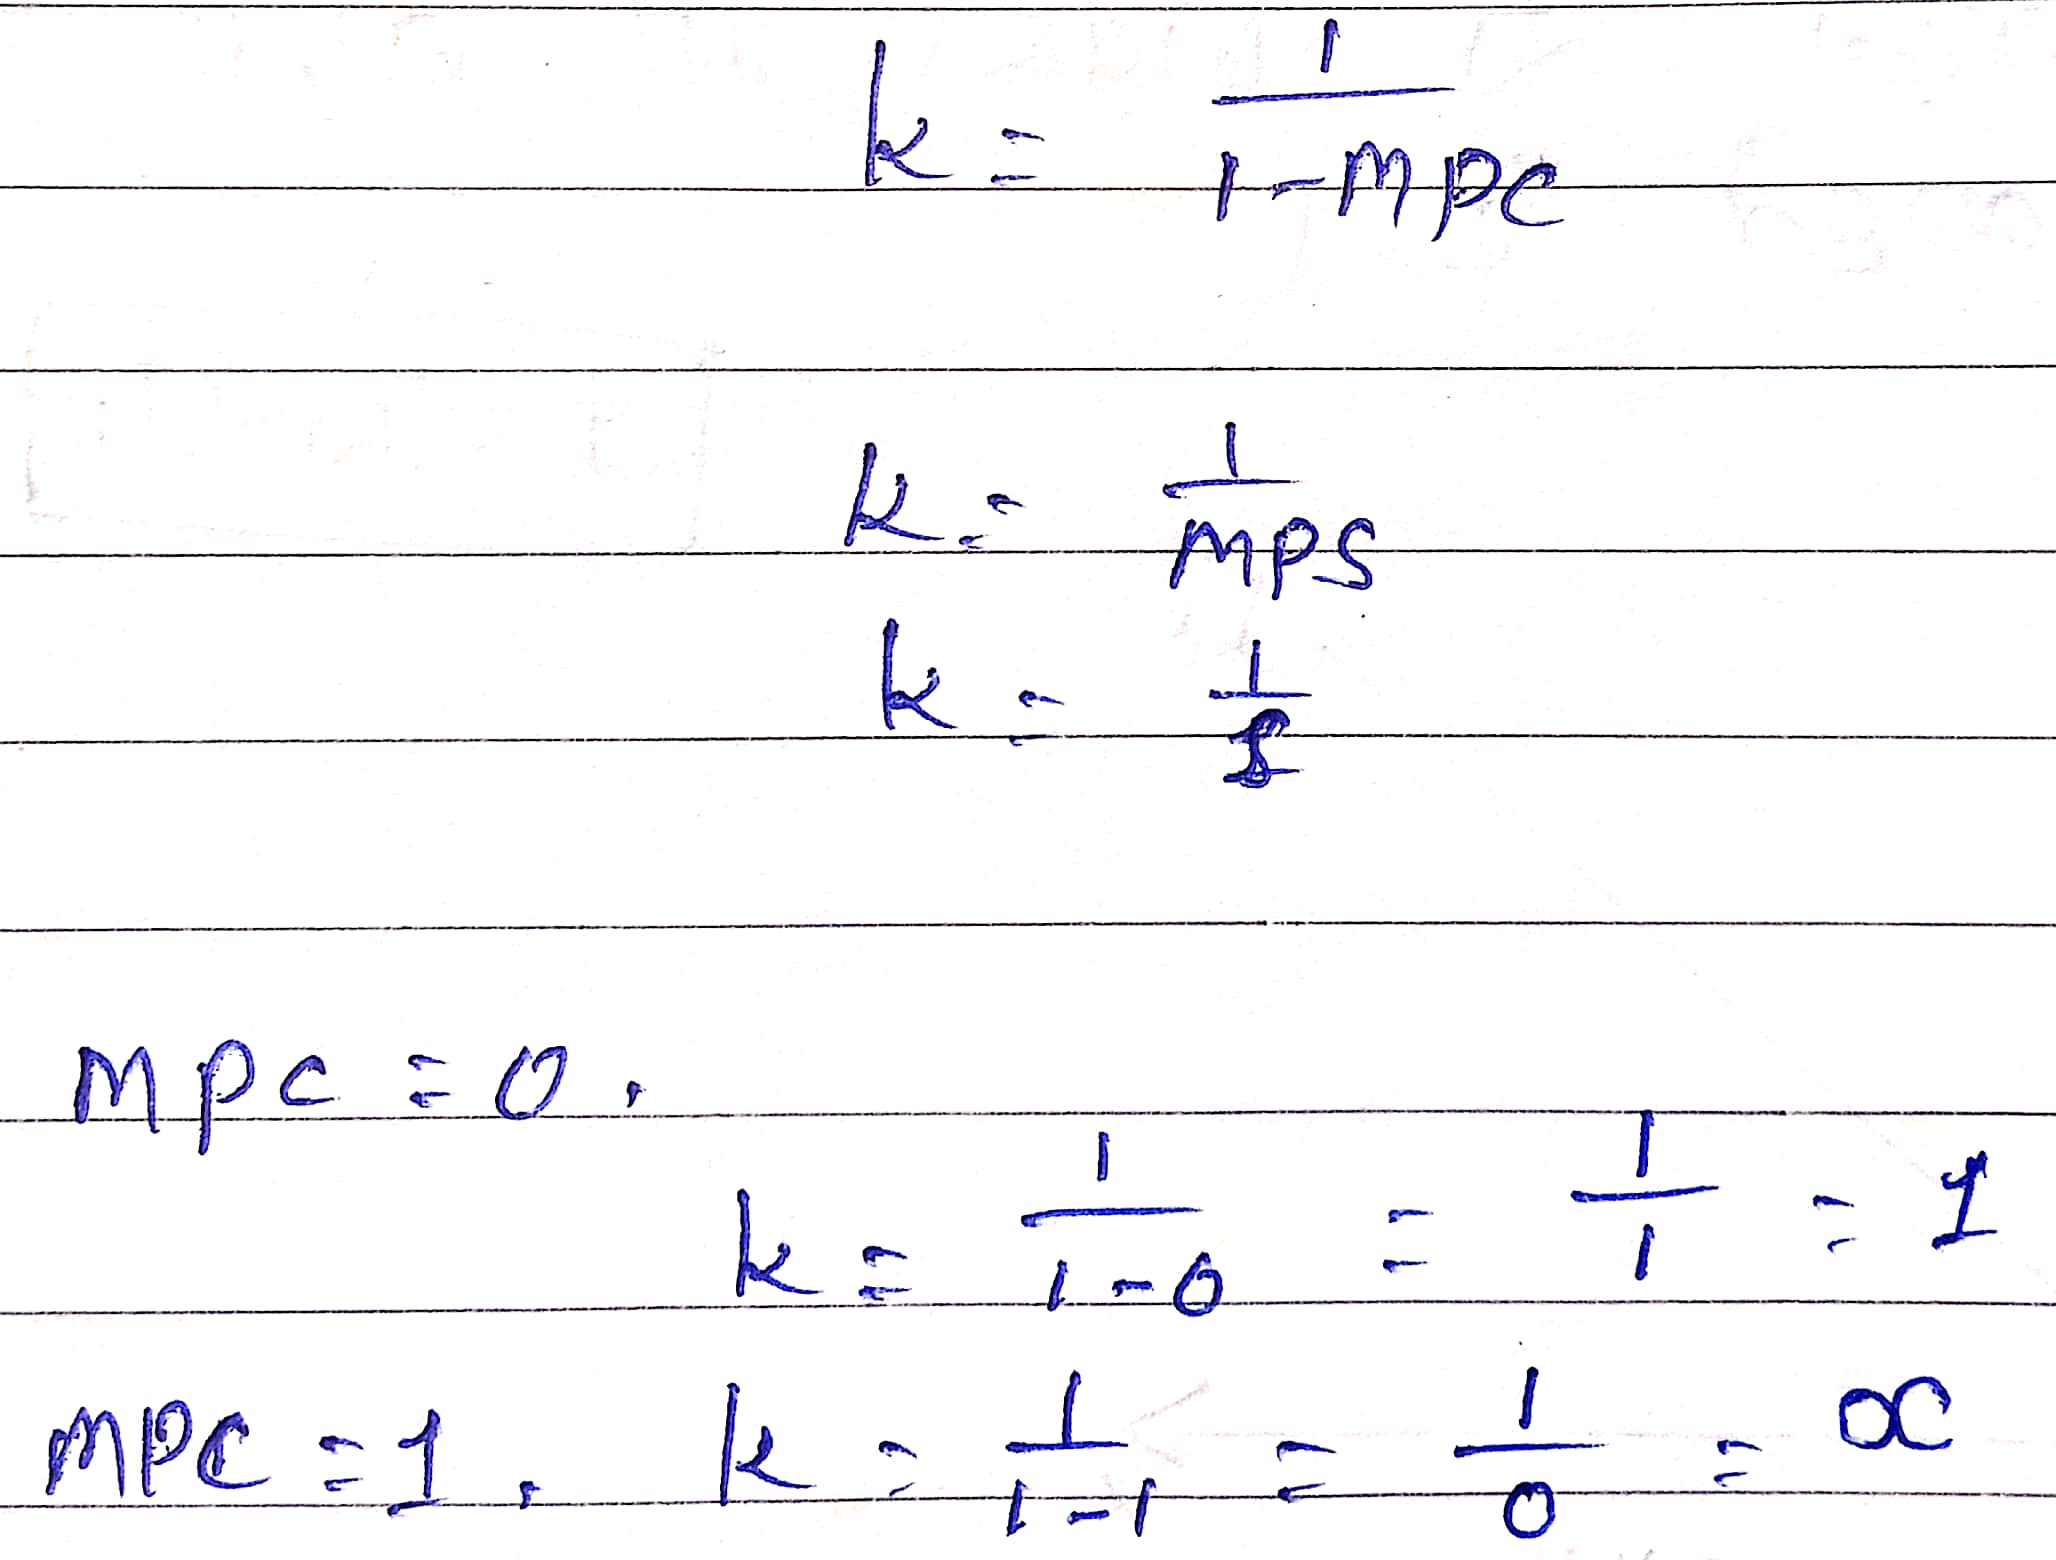 k = 1/(1-MPC)
k = 1/MPS
k = 1/s
MPC = 0,
k = 1/(1-0) = 1/1 = 1
MPC = 1, k = 1/(1-1) = 1/0 = ∞